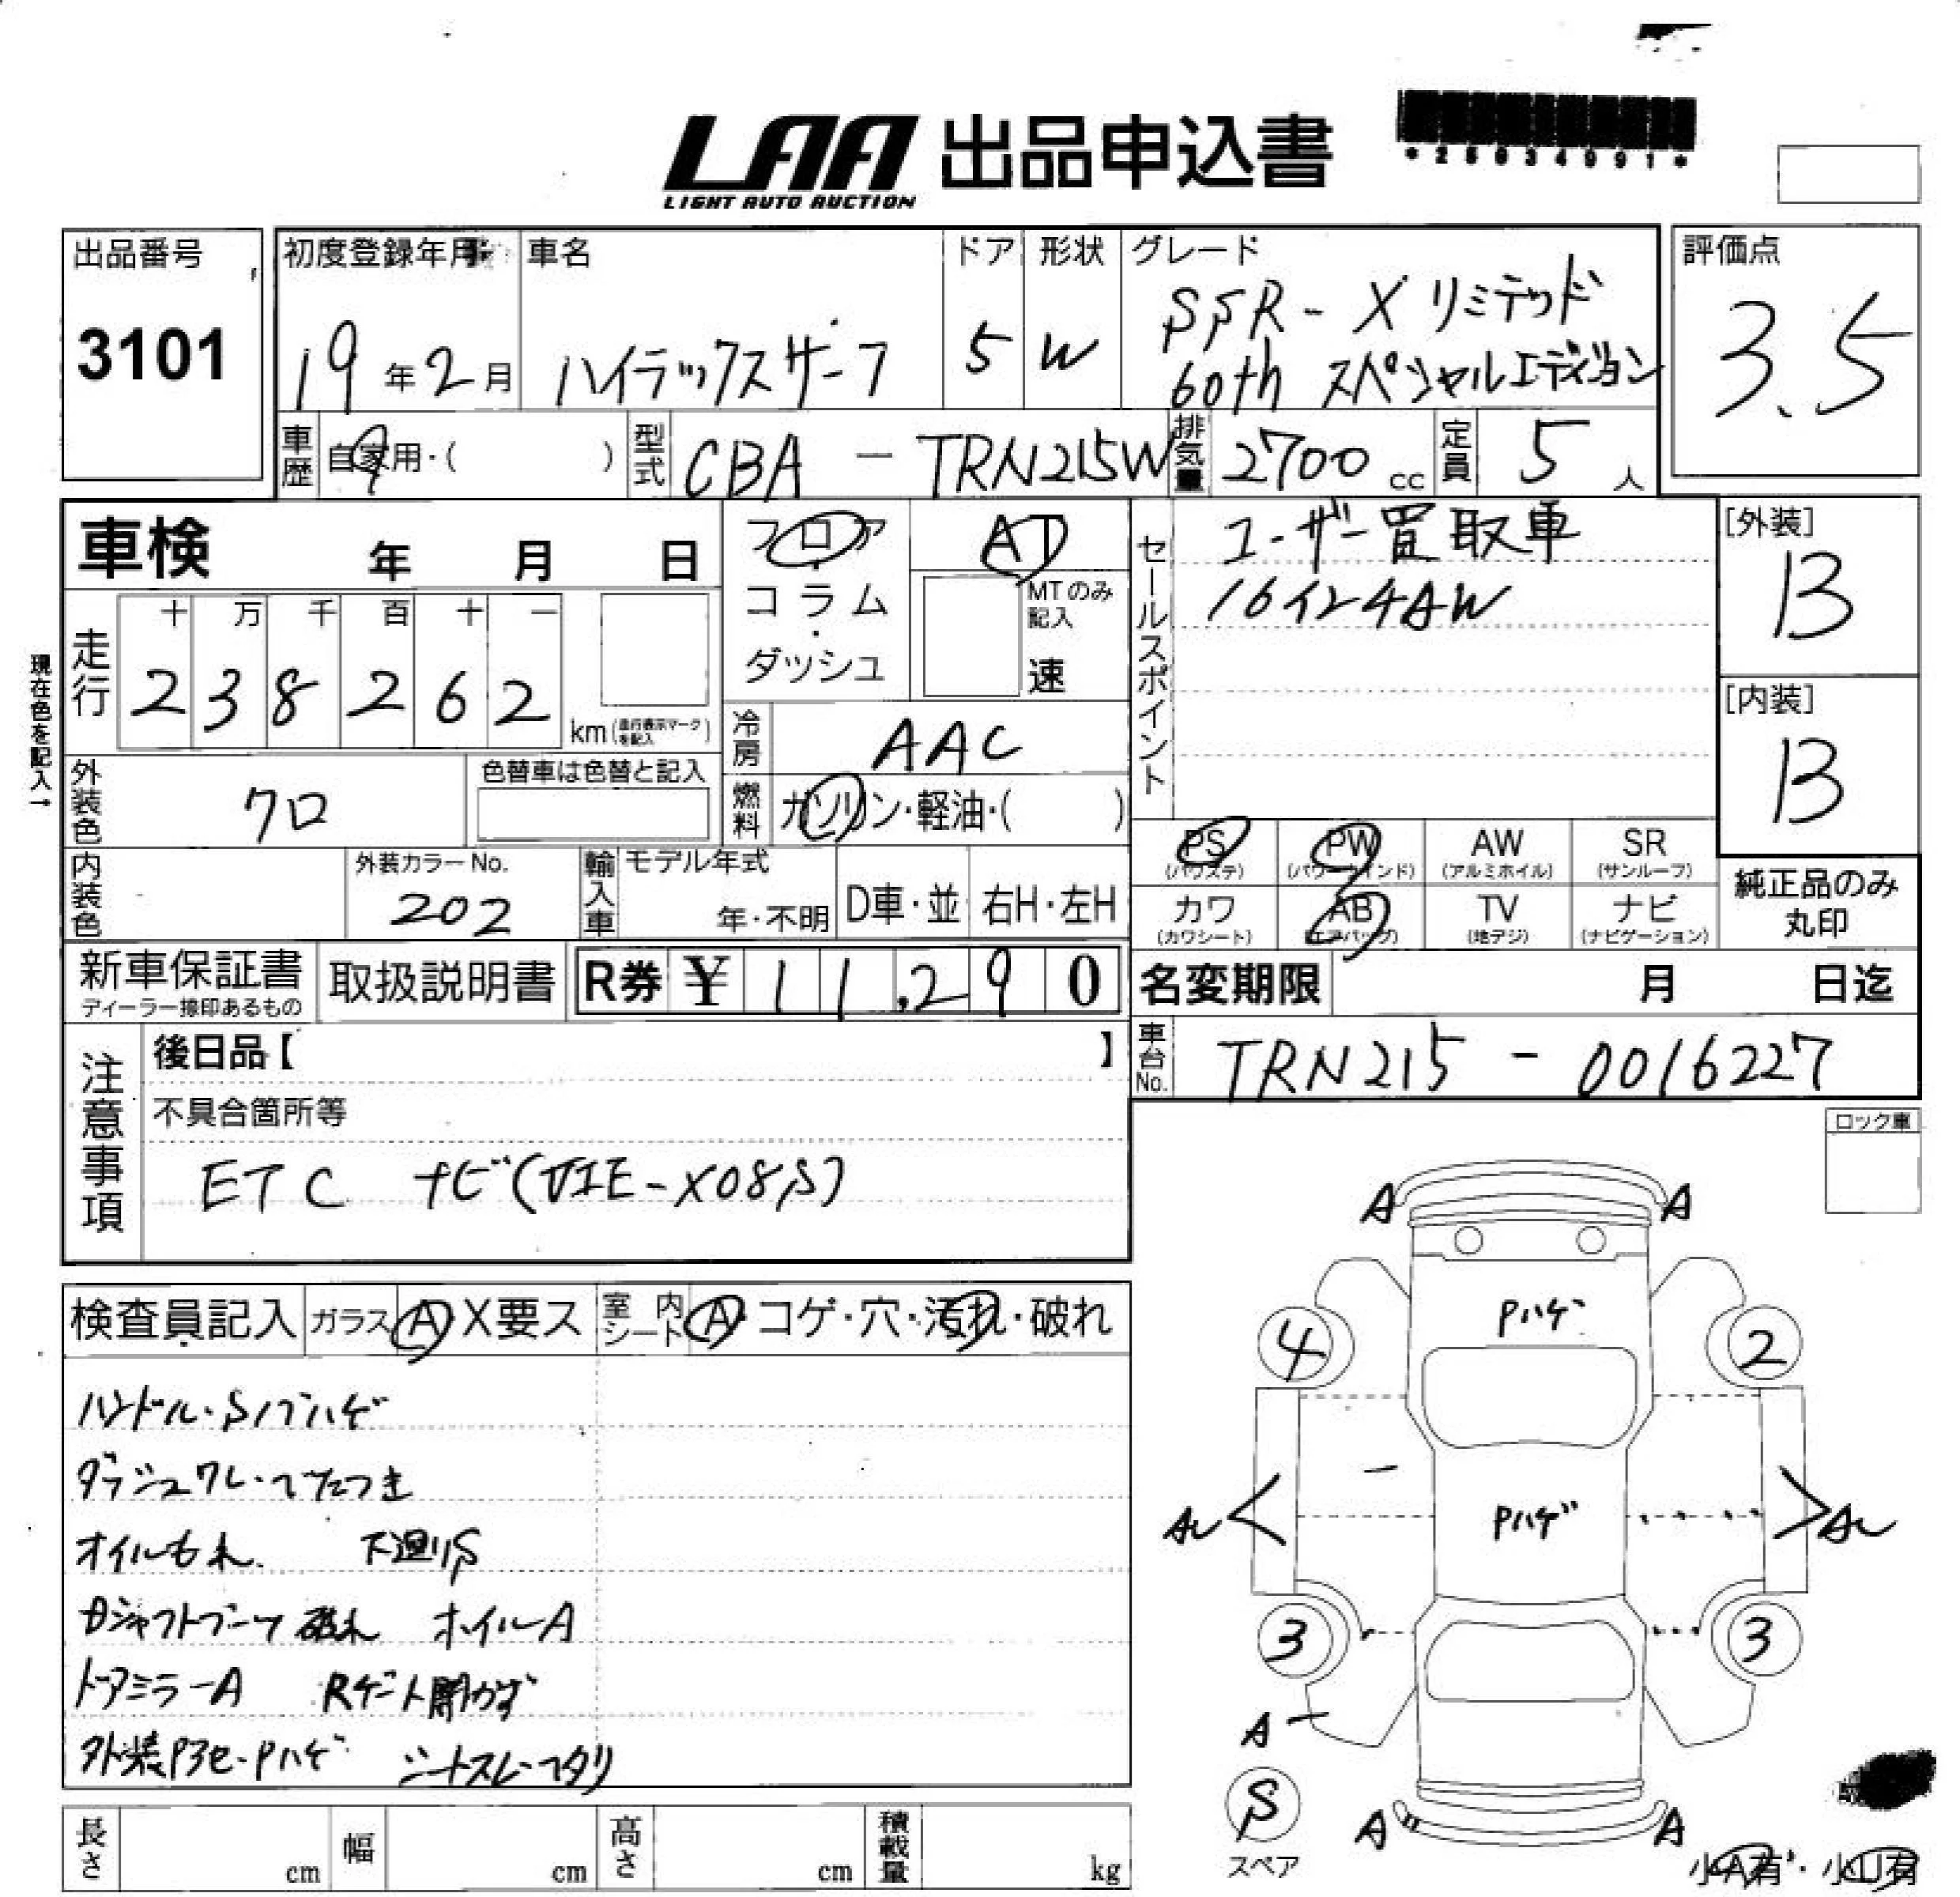 LAA 出品申込書
LIGHT AUTO AUCTION
*25034991*
出品番号
3101
初度登録年月
19年2月
車名
ハイラックスサーフ
ドア
5
形状
W
グレード
SSR-X リミテッド
60th スペシャルエディション
評価点
3.5
車歴
自家用・( )
型式
CBA - TRN215W
排気量
2700 cc
定員
5 人
車検 年 月 日
フロア
・
コラム
・
ダッシュ
AT
MTのみ記入
速
セールスポイント
ユーザー買取車
16インチAW
[外装]
B
[内装]
B
現在色を記入→
走行
十 万 千 百 十 一
2 3 8 2 6 2
km (走行表示マークを記入)
冷房
AAC
外装色
クロ
色替車は色替と記入
燃料
ガソリン・軽油・( )
PS (パワステ)
PW (パワーウインド)
AW (アルミホイル)
SR (サンルーフ)
カワ (カワシート)
AB (エアバッグ)
TV (地デジ)
ナビ (ナビゲーション)
純正品のみ
丸印
内装色
外装カラーNo.
202
輸入車
モデル年式
年・不明
D車・並
右H・左H
新車保証書
ディーラー捺印あるもの
取扱説明書
R券 ¥ 11,290
名変期限 月 日迄
車台No.
TRN215 - 0016227
注意事項
後日品【 】
不具合箇所等
ETC ナビ(VIE-X08S)
ロック車
検査員記入
ガラス A X要ス
室内シート A・コゲ・穴・汚れ・破れ
ハンドル・Sノブハゲ
ダッシュワレ・ベタつき
オイルもれ 下廻りS
Dシャフトブーツ破れ ホイルA
ドアミラーA Rゲート開かず
外装P3セ・Pハゲ シートスレ・ヘタリ
A A
Pハゲ
4 2
AU Pハゲ AU
3 3
A
S
スペア
A A
小A有・小U有
長さ cm
幅 cm
高さ cm
積載量 kg